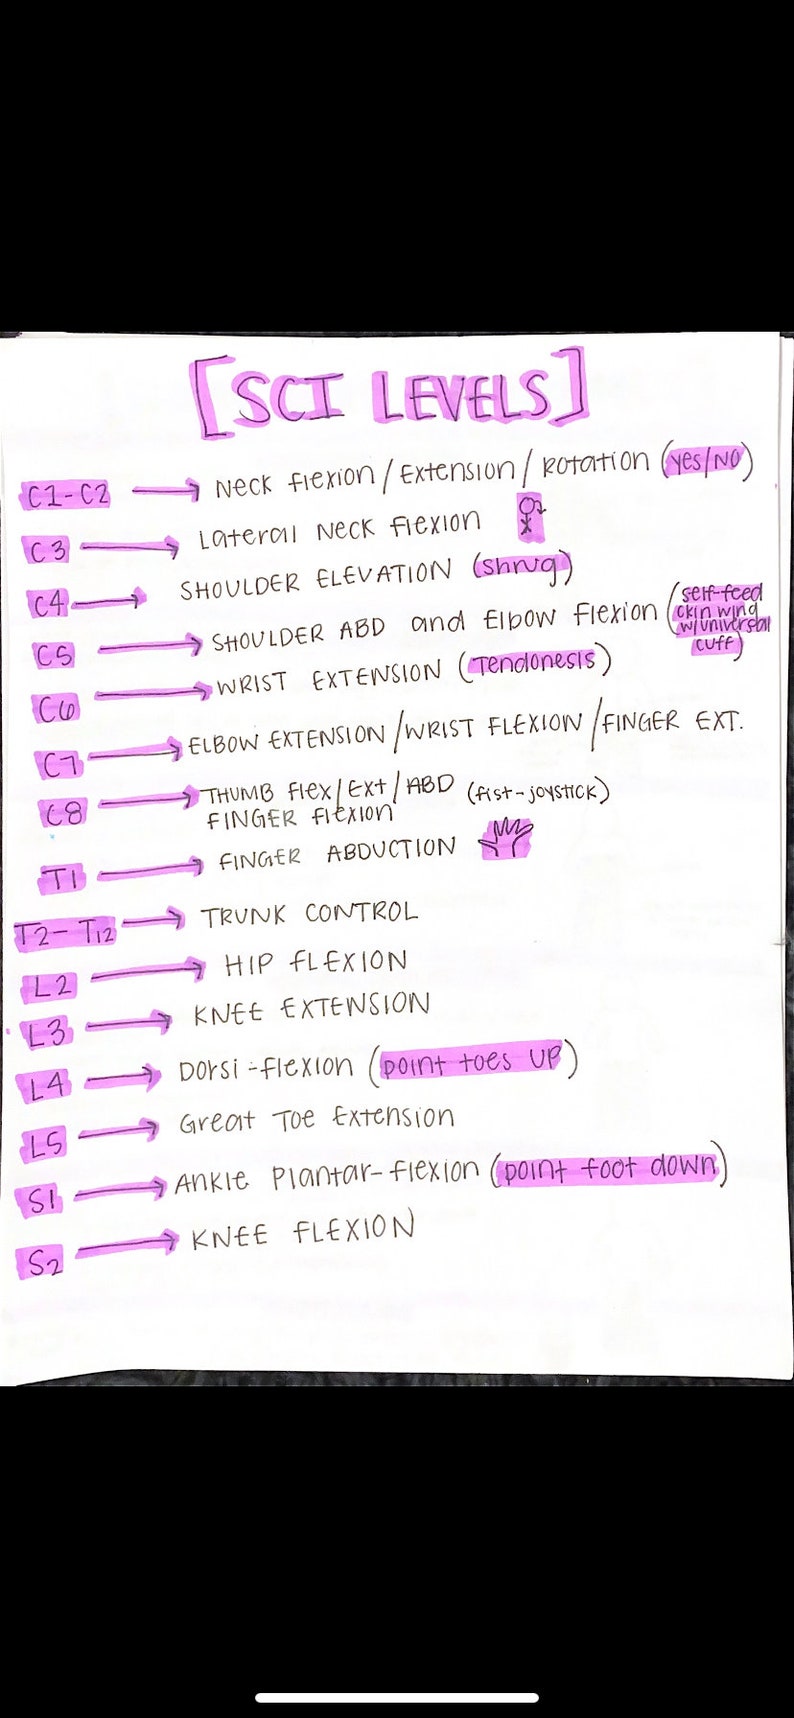 [SCI LEVELS]
C1-C2 → Neck flexion / Extension / Rotation (yes/NO)
C3 → Lateral Neck flexion
C4 → SHOULDER ELEVATION (shrug)
C5 → SHOULDER ABD and Elbow flexion (self-feed
ckin wing
w/universal
cuff)
C6 → WRIST EXTENSION (Tendonesis)
C7 → ELBOW EXTENSION / WRIST FLEXION / FINGER EXT.
C8 → THUMB flex / Ext / ABD (fist-joystick)
FINGER flexion
T1 → FINGER ABDUCTION
T2-T12 → TRUNK CONTROL
L2 → HIP FLEXION
L3 → KNEE EXTENSION
L4 → Dorsi-flexion (point toes UP)
L5 → Great Toe Extension
S1 → Ankle Plantar-flexion (point foot down)
S2 → KNEE FLEXION